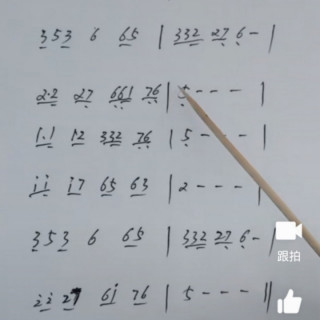 353 6 65 | 332 27 6- |
2·2 27 661 76 | 5 - - - |
1·1 12 332 76 | 5 - - - |
i i i7 65 63 | 2 - - - |
353 6 65 | 332 27 6- |
2 2 27 6i 76 | 5 - - - ||
跟拍